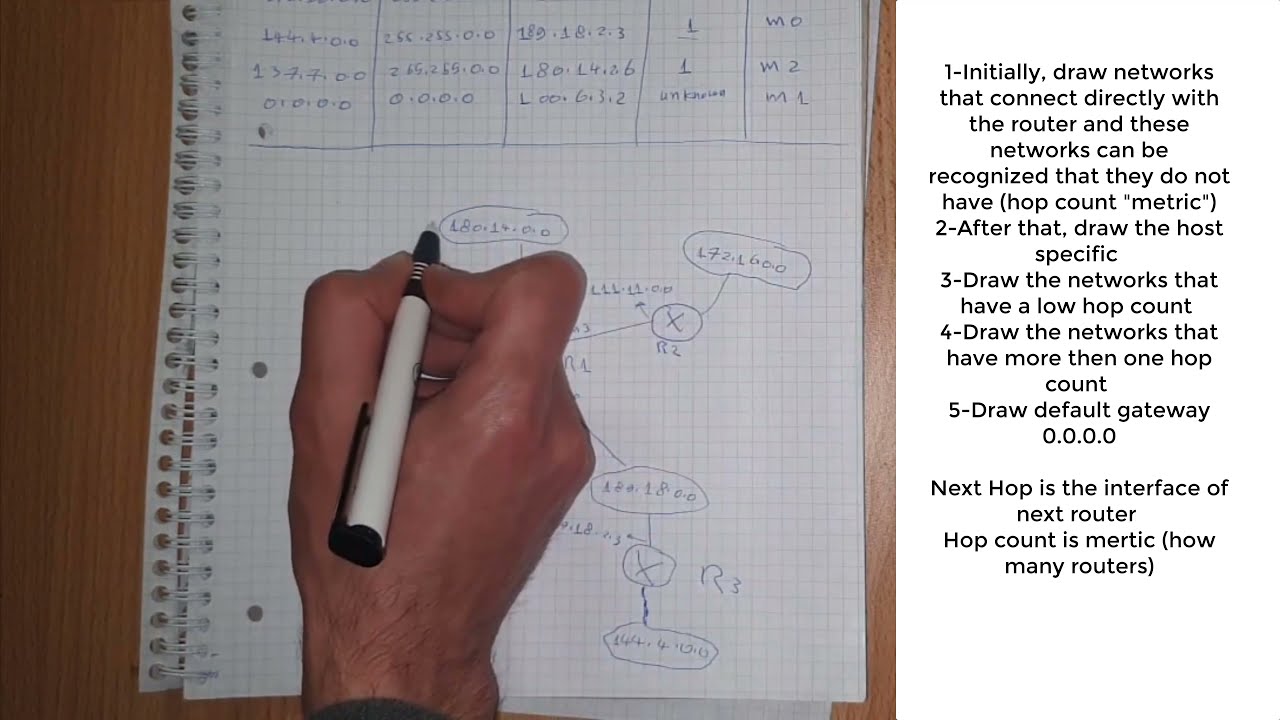 144.4.0.0 255.255.0.0 189.18.2.3 1 m0
137.7.0.0 255.255.0.0 180.14.2.6 1 m2
0.0.0.0 0.0.0.0 100.6.3.2 unknown m1
180.14.0.0
172.16.0.0
111.11.0.0
R2
R1
189.18.0.0
.18.2.3
R3
144.4.0.0
1-Initially, draw networks
that connect directly with
the router and these
networks can be
recognized that they do not
have (hop count "metric")
2-After that, draw the host
specific
3-Draw the networks that
have a low hop count
4-Draw the networks that
have more then one hop
count
5-Draw default gateway
0.0.0.0
Next Hop is the interface of
next router
Hop count is mertic (how
many routers)